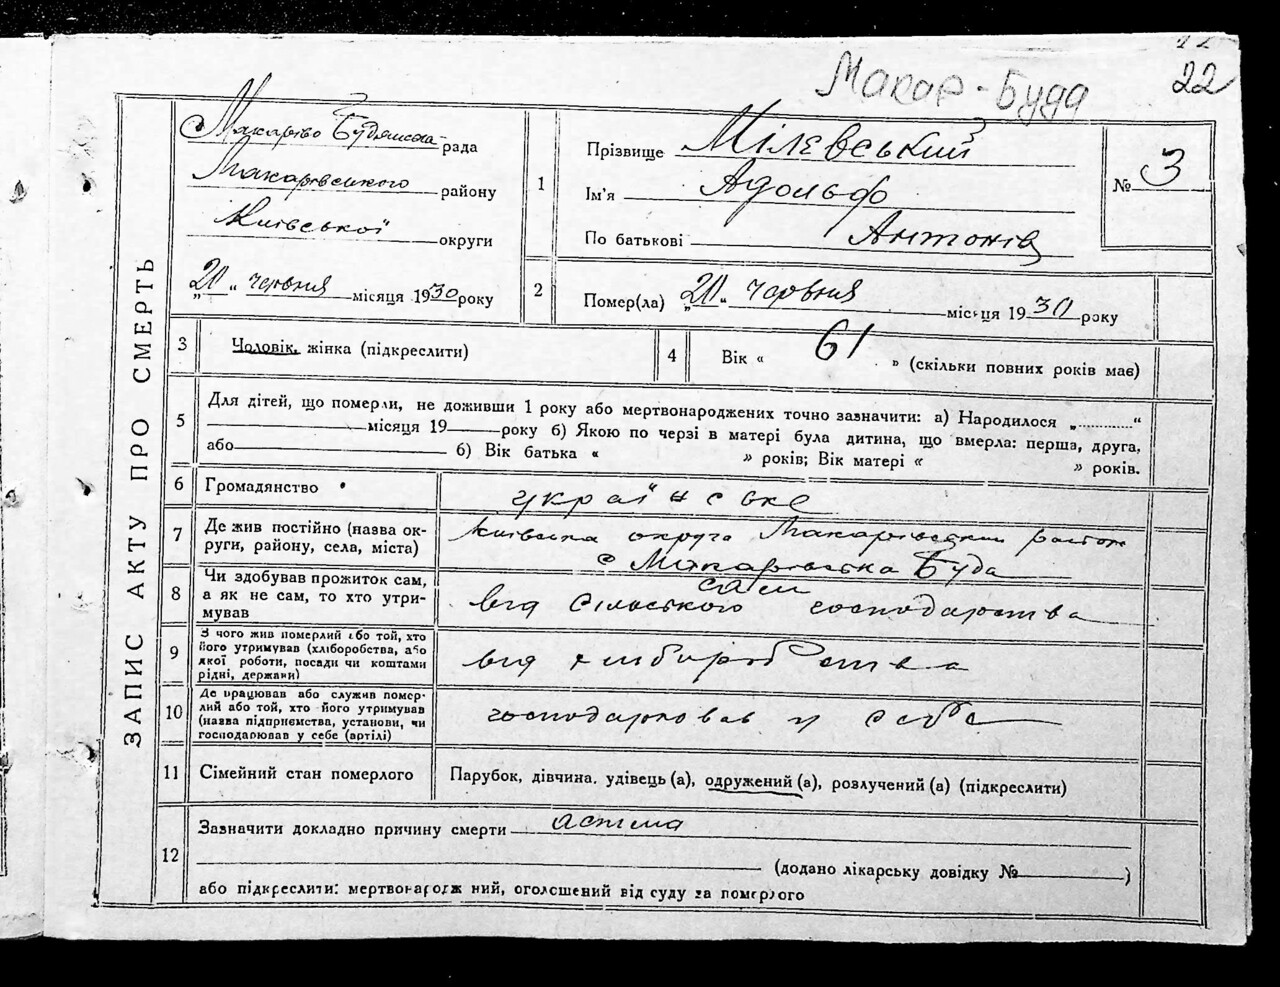 22
Макар-Буда
22
ЗАПИС АКТУ ПРО СМЕРТЬ
Макарово Будянська рада
Макарівського району
Київської округи
„20“ червня місяця 1930 року
1
Прізвище Мілєвський
Ім'я Адольф
По батькові Антонів
№ 3
2
Помер(ла) „20“ червня місяця 1930 року
3
Чоловік, жінка (підкреслити)
4
Вік « 61 » (скільки повних років має)
5
Для дітей, що померли, не доживши 1 року або мертвонароджених точно зазначити: а) Народилося „............“
місяця 19 року б) Якою по черзі в матері була дитина, що вмерла: перша, друга,
або б) Вік батька « » років; Вік матері « » років.
6
Громадянство
українське
7
Де жив постійно (назва ок-
руги, району, села, міста)
Київська округа Макарівський район
с Макарівська Буда
8
Чи здобував прожиток сам,
а як не сам, то хто утри-
мував
сам
від сільського господарства
9
З чого жив померлий або той, хто
його утримував (хліборобства, або
якої роботи, посади чи коштами
рідні, держави)
від хліборобства
10
Де працював або служив помер-
лий або той, хто його утримував
(назва підприємства, установи, чи
господарював у себе (артілі)
господарював у себе
11
Сімейний стан померлого
Парубок, дівчина, удівець (а), одружений (а), розлучений (а) (підкреслити)
12
Зазначити докладно причину смерти астма
(додано лікарську довідку № )
або підкреслити: мертвонародж ний, оголошений від суду за померлого